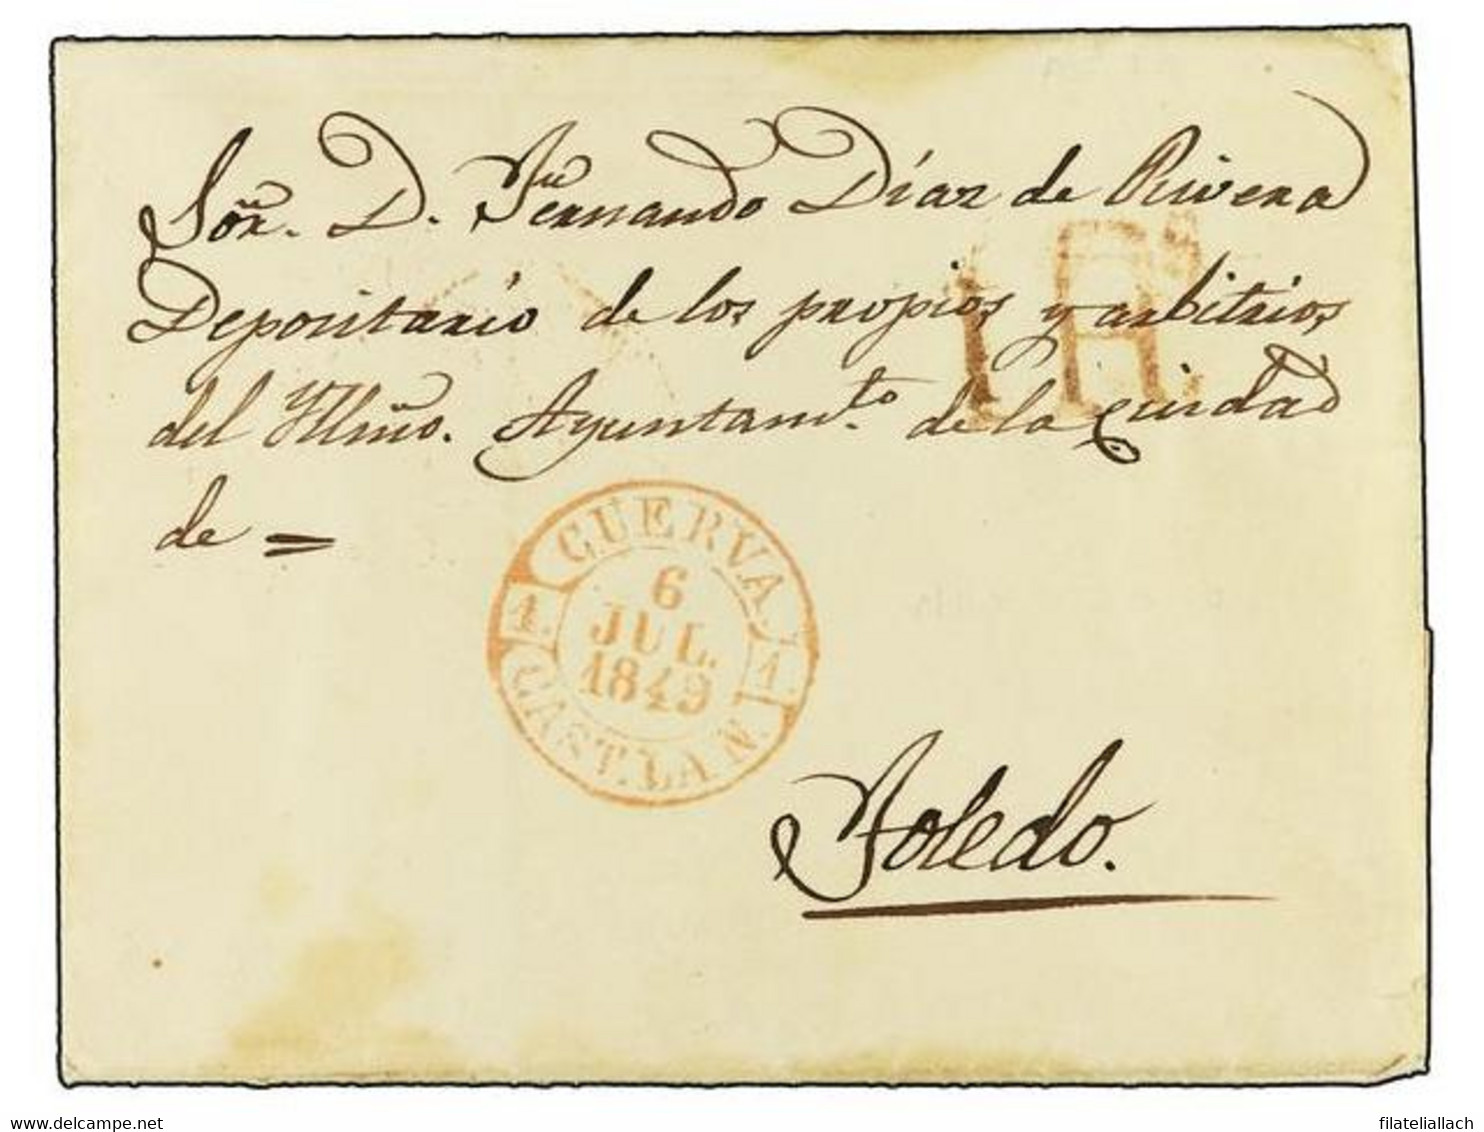 Sõr. D. Fernando Díaz de Rivera
Depositario de los propios y arbitrios
del Yllmo. Ayuntamto. de la Ciudad
de =
1 Rs.
CUERVA.
1.
6
JUL.
1849
1.
CAST. LA N.
Toledo.
delcampe.net
filateliallach